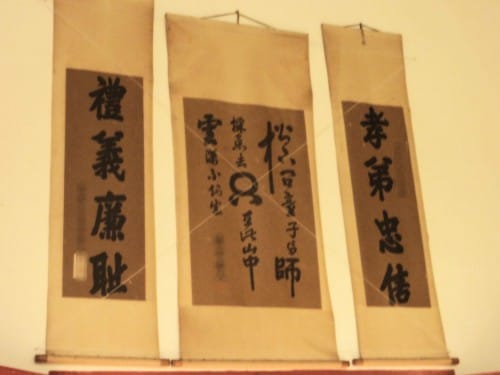 孝弟忠信
松下問童子言師
採藥去只在此山中
雲深不知處
禮義廉耻